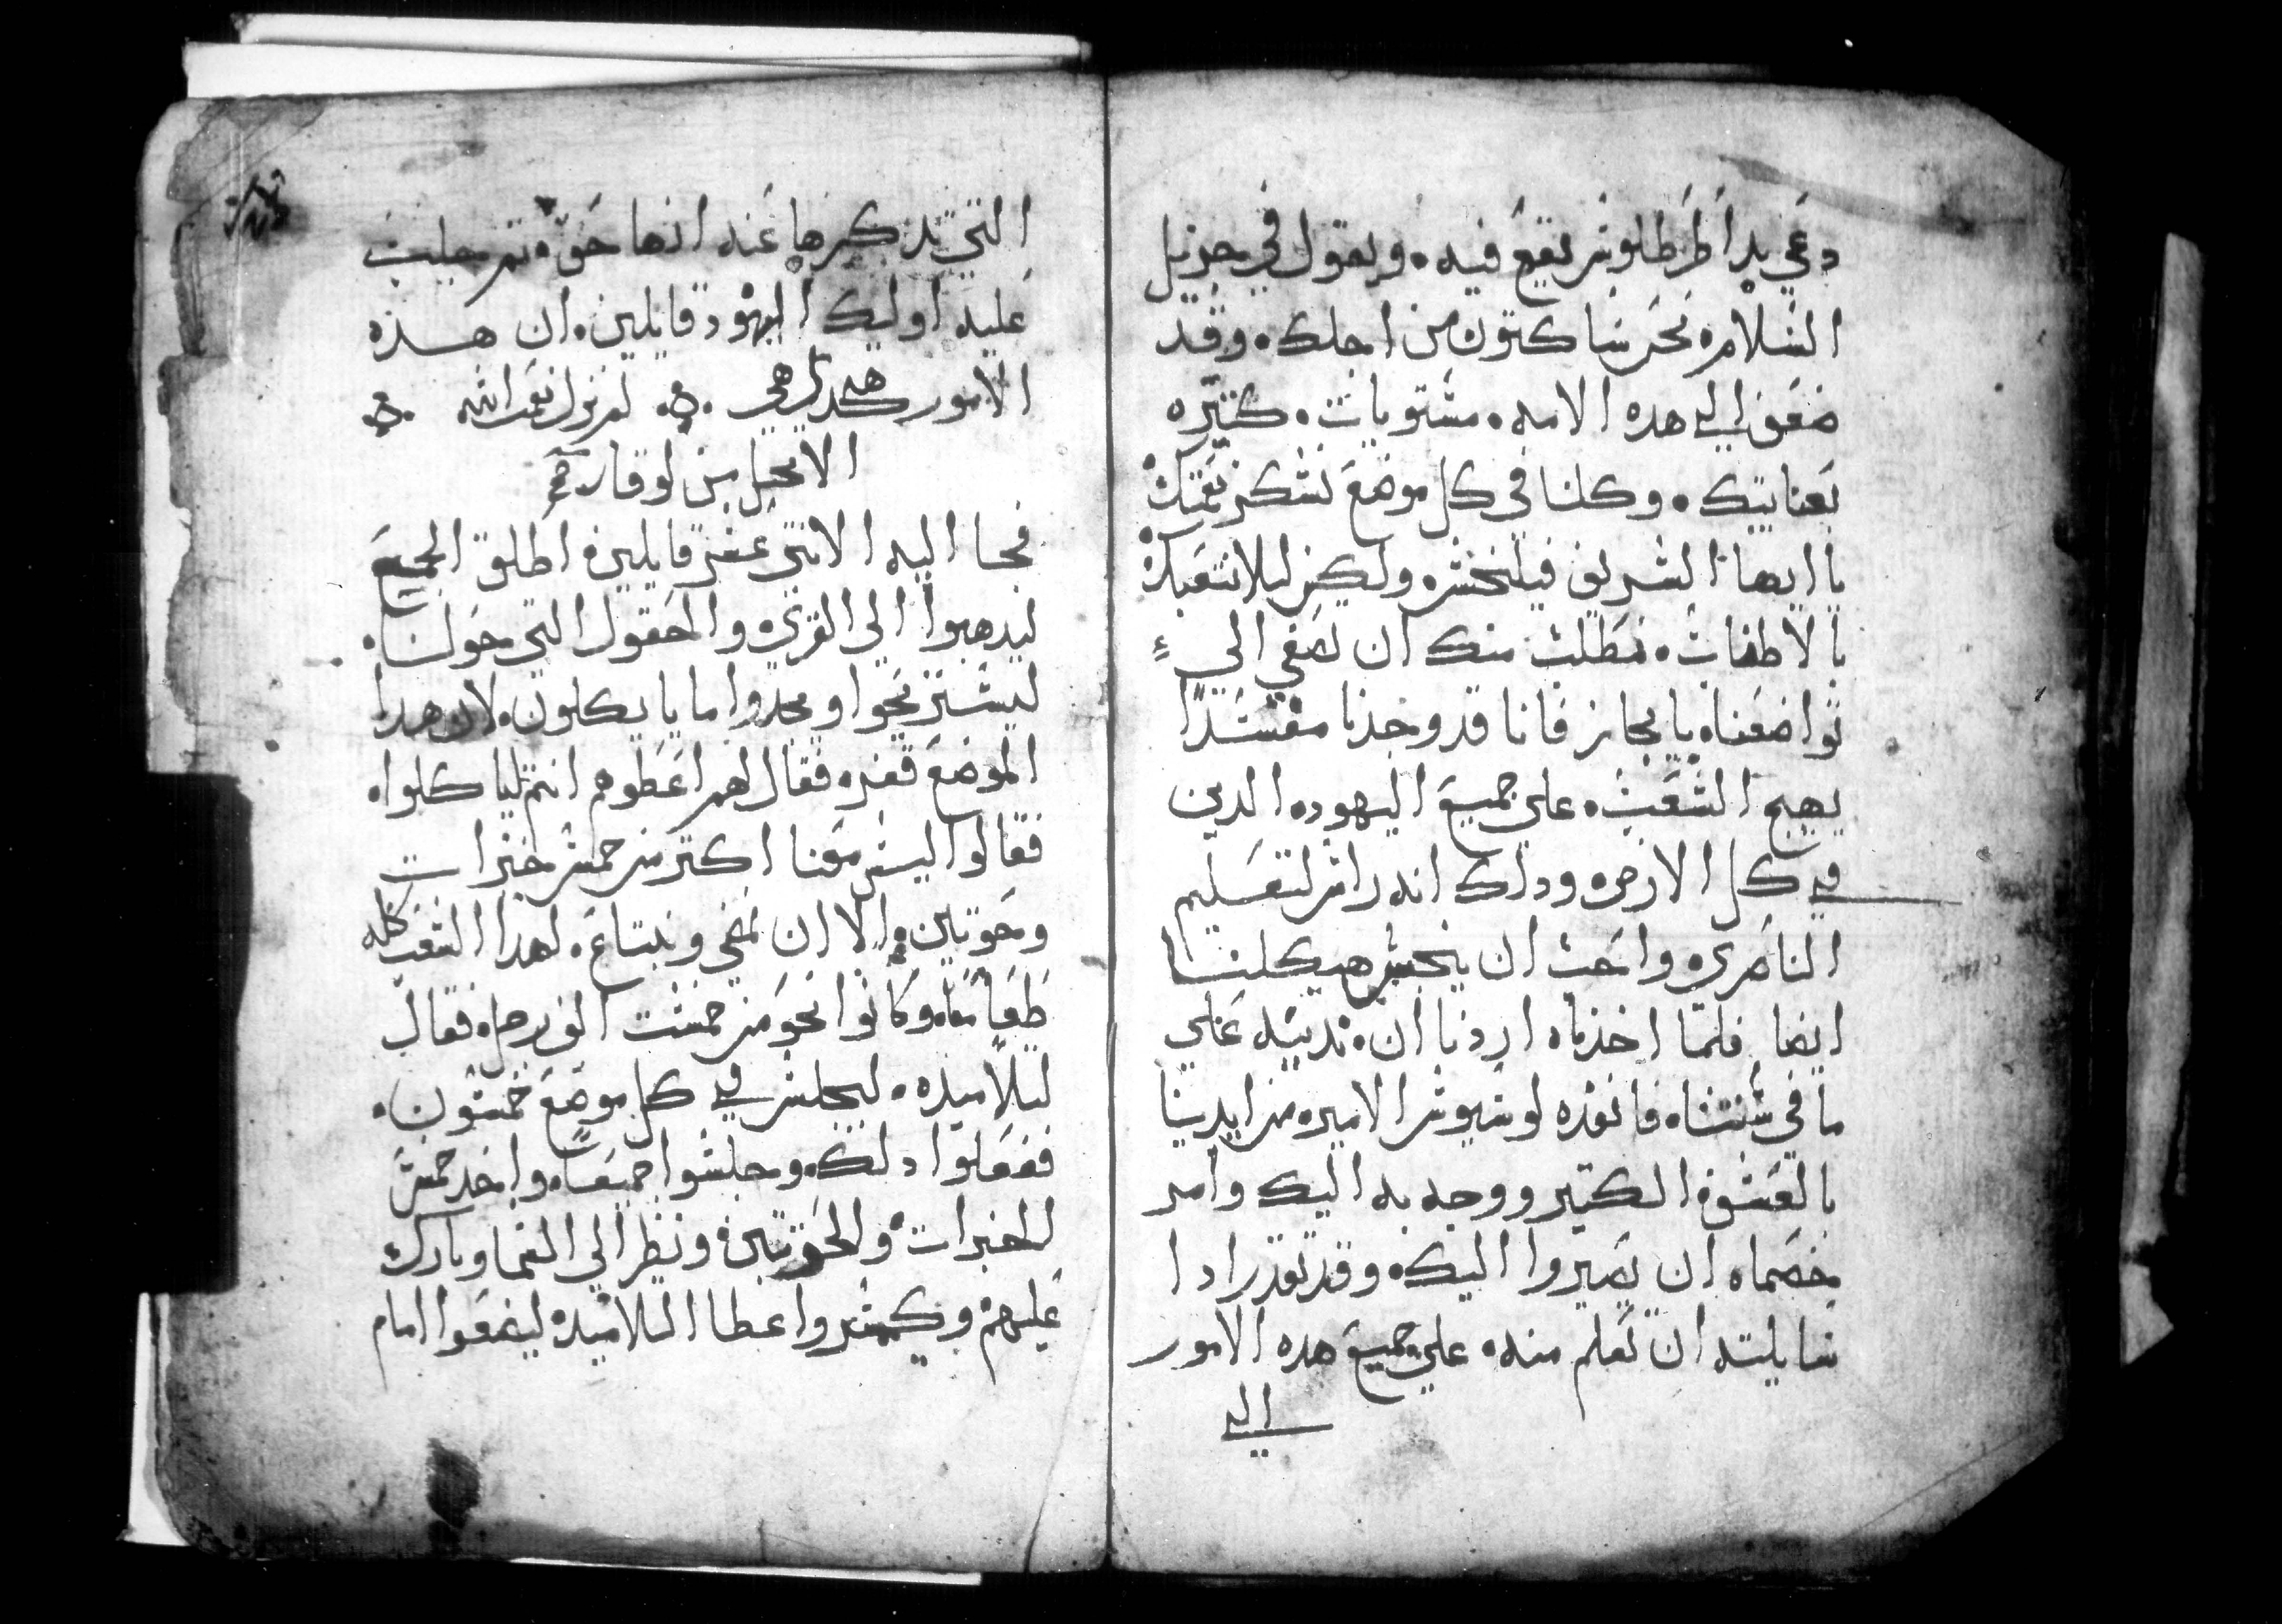 دعي بدا طرطلوس يقع فيه. ويقول في جزيل
السلامه نحن ساكتون من اجلك. وقد
ضعف الي هده الامه. مستويات. كتيره
بعنايتك. وكلنا في كل موضع نشكر نعمتك
يا ايها الشريف فيلخس ولكن ليلا نتعبك
بالاطفات. نطلب منك ان تصغي الي
تواضعنا. بايجاز فانا قد وجدنا مفسدا
يهيج الشغب. علي جميع اليهود. الدين
في كل الارض. ودلك انه راس لتعليم
الناصري. واحب ان ينجس هيكلنا
ايضا فلما اخذناه اردنا ان ندينه علي
ما في سنتنا. فانقذه لوسيوس الامير. من ايدينا
بالعسوة الكتير ووجه به اليك وامر
خصماه ان يصيروا اليك. وقد تقدر ادا
سايلته ان تعلم منه. علي جميع هده الامور
الي
التي تدكرها عنه انها حق. تم جلبت
عليه اوليك اليهود قايلين. ان هذه
الامور هكدي هي لم تزل نعمت الله
الانجيل من لوقا
فجا اليه الاتني عشر قايلين. اطلق الجميع
ليدهبوا الي القري. والحقول التي حولنا.
ليستريحوا ويجدوا ما يا يكلون. لان هدا
الموضع قفر. فقال لهم اعطوهم انتم لياكلوا.
فقالوا ليس معنا اكتر من خمس خبزات
وحوتين. والا ان نمضي ونبتاع. لهدا الشعب كله
طعاما. وكانوا نحو من خمست الف رجل. فقال
لتلاميده. ليجلس في كل موضع خمسون.
ففعلوا دلك. وجلسوا جميعا. واخد خمس
الخبزات والحوتين. ونظر الي السما وبارك
عليهم وكسر واعطا التلاميد. ليضعوا امام